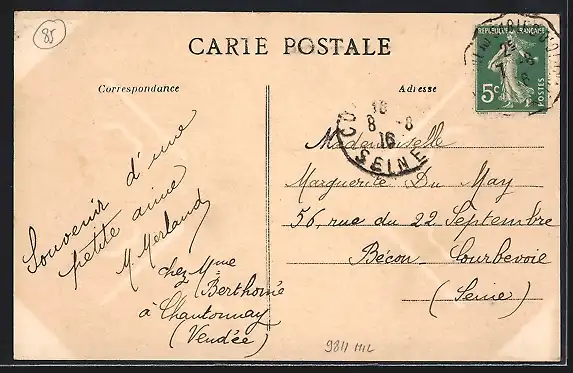 85
CARTE POSTALE
Correspondance
Adresse
REPUBLIQUE FRANÇAISE
5c
POSTES
2E
7 -8
18
8 -8
16
SEINE
Souvenir d'une
petite amie
M. Merland
chez Mme
Berthomé
à Chantonnay
(Vendée)
Mademoiselle
Marguerite Du May
56, rue du 22 Septembre
Bécon-Courbevoie
(Seine)